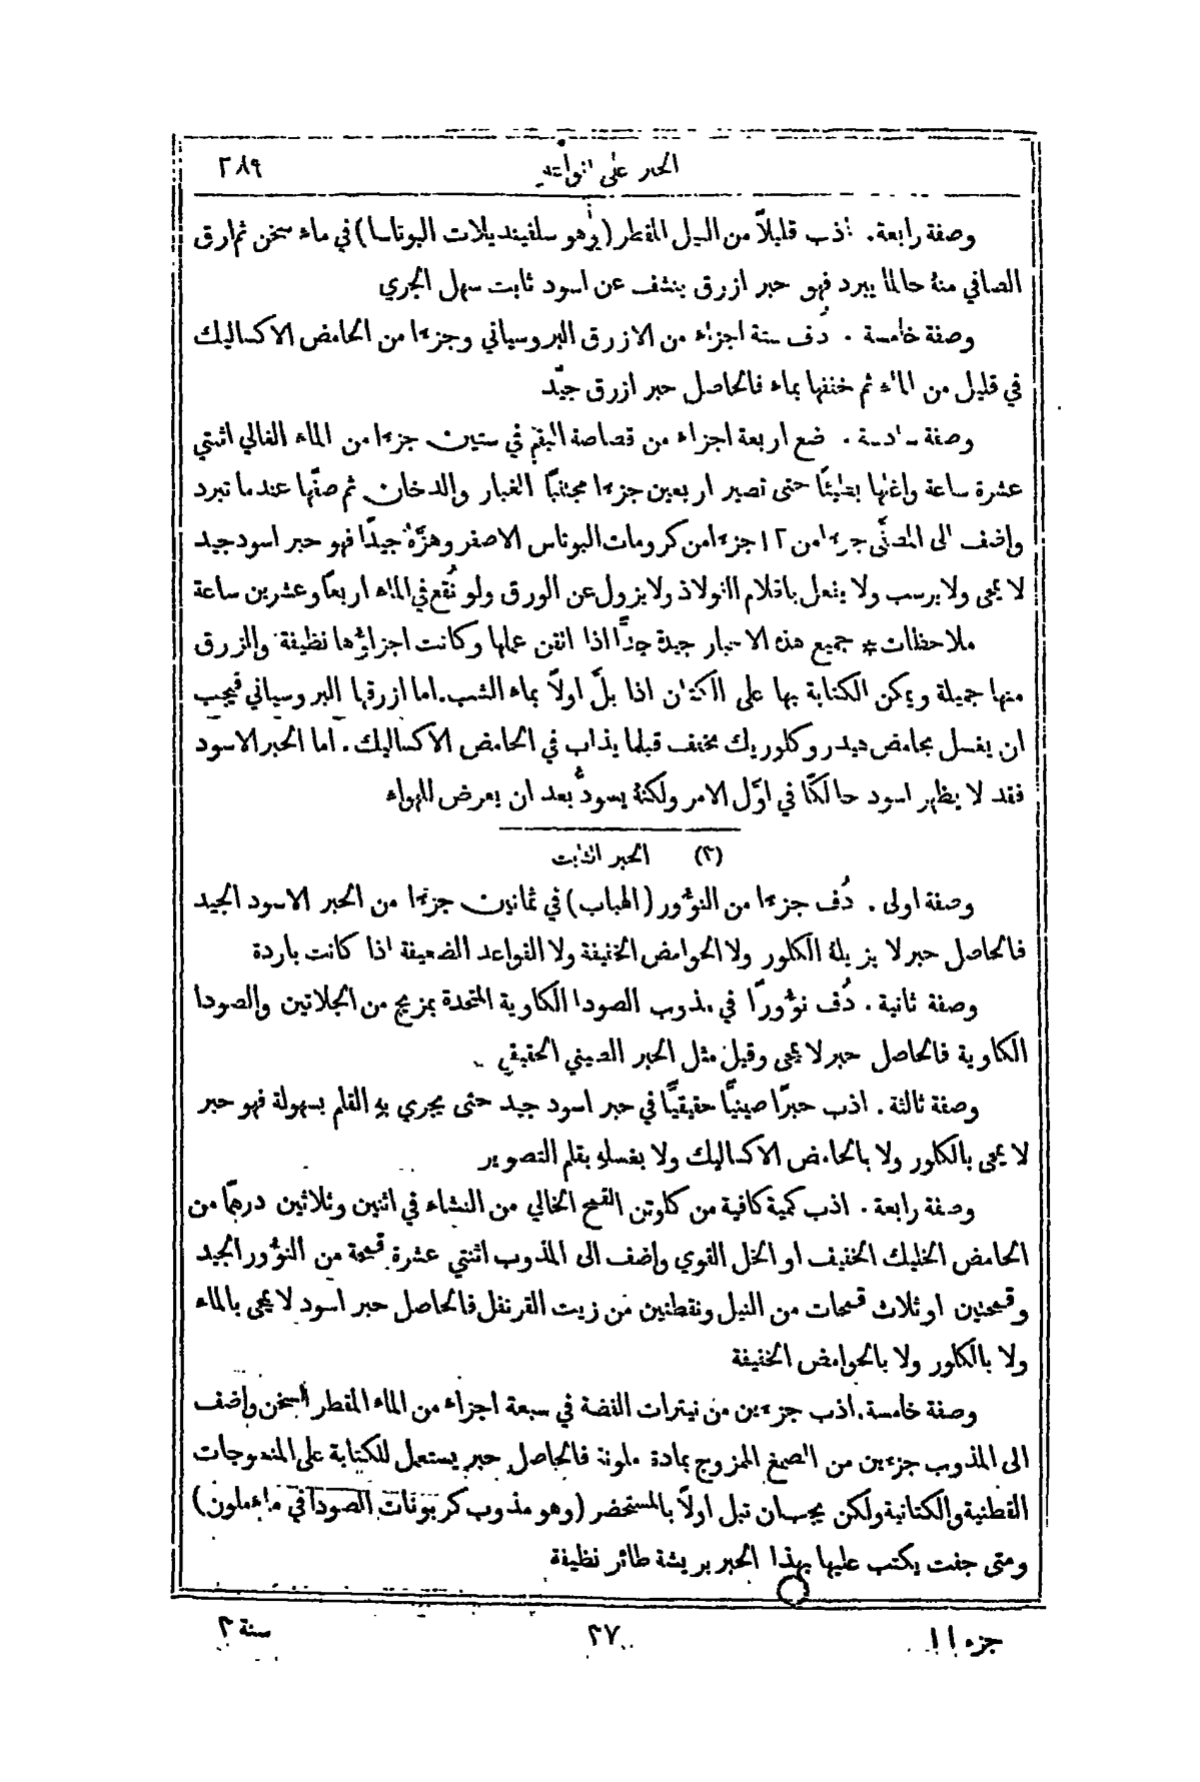 الحبر على انواعه ٢٨٩
وصفة رابعة. اذب قليلاً من النيل المقطر (وهو سلفينديلات البوتاسا) في ماء سخن ثم ارق
الصافي منهُ حالما يبرد فهو حبر ازرق ينشف عن اسود ثابت سهل الجري
وصفة خامسة. دُف ستة اجزاء من الازرق البروسياني وجزءا من الحامض الاكساليك
في قليل من الماء ثم خففها بماء فالحاصل حبر ازرق جيّد
وصفة سادسة. ضع اربعة اجزاء من قصاصة البقم في ستين جزءا من الماء الغالي اثنتي
عشرة ساعة واغلها بطيئًا حتى تصير اربعين جزءا مجتنبًا الغبار والدخان ثم صفّها عندما تبرد
واضف الى المصفَّى جزءا من ١٢ جزءا من كرومات البوتاس الاصفر وهزَّهُ جيدًا فهو حبر اسود جيد
لا يمحى ولا يرسب ولا يفعل باقلام الفولاذ ولا يزول عن الورق ولو نُقع في الماء اربعًا وعشرين ساعة
ملاحظات * جميع هذه الاحبار جيدة جدًّا اذا اتقن عملها وكانت اجزاؤها نظيفة والزرق
منها جميلة ويمكن الكتابة بها على الكتان اذا بلّ اولاً بماء الشب. اما ازرقها البروسياني فيجب
ان يغسل بحامض هيدروكلوريك مخفف قبلما يذاب في الحامض الاكساليك. اما الحبر الاسود
فقد لا يظهر اسود حالكًا في اوَّل الامر ولكنهُ يسودُّ بعد ان يعرض للهواء
(٢) الحبر الثابت
وصفة اولى. دُف جزءا من النؤور (الهباب) في ثمانين جزءا من الحبر الاسود الجيد
فالحاصل حبر لا يزيلهُ الكلور ولا الحوامض الخفيفة ولا القواعد الضعيفة اذا كانت باردة
وصفة ثانية. دُف نؤورًا في مذوب الصودا الكاوية المتحدة بمزيج من الجلاتين والصودا
الكاوية فالحاصل حبر لا يمحى وقيل مثل الحبر الصيني الحقيقي
وصفة ثالثة. اذب حبرًا صينيًّا حقيقيًّا في حبر اسود جيد حتى يجري بهِ القلم بسهولة فهو حبر
لا يمحى بالكلور ولا بالحامض الاكساليك ولا بغسلهِ بقلم التصوير
وصفة رابعة. اذب كمية كافية من كلوتن القمح الخالي من النشاء في اثنين وثلاثين درهمًا من
الحامض الخليك الخفيف او الخل القوي واضف الى المذوب اثنتي عشرة قمحة من النؤور الجيد
وقمحتين او ثلاث قمحات من النيل ونقطتين من زيت القرنفل فالحاصل حبر اسود لا يمحى بالماء
ولا بالكلور ولا بالحوامض الخفيفة
وصفة خامسة. اذب جزءين من نيترات الفضة في سبعة اجزاء من الماء المقطر السخن واضف
الى المذوب جزءين من الصمغ الممزوج بمادة ملونة فالحاصل حبر يستعمل للكتابة على المنسوجات
القطنية والكتانية ولكن يجب ان تبل اولاً بالمستحضر (وهو مذوب كربونات الصودا في ماء ملون)
ومتى جفت يكتب عليها بهذا الحبر بريشة طائر نظيفة
جزء ١١ ٢٧ سنة ٢